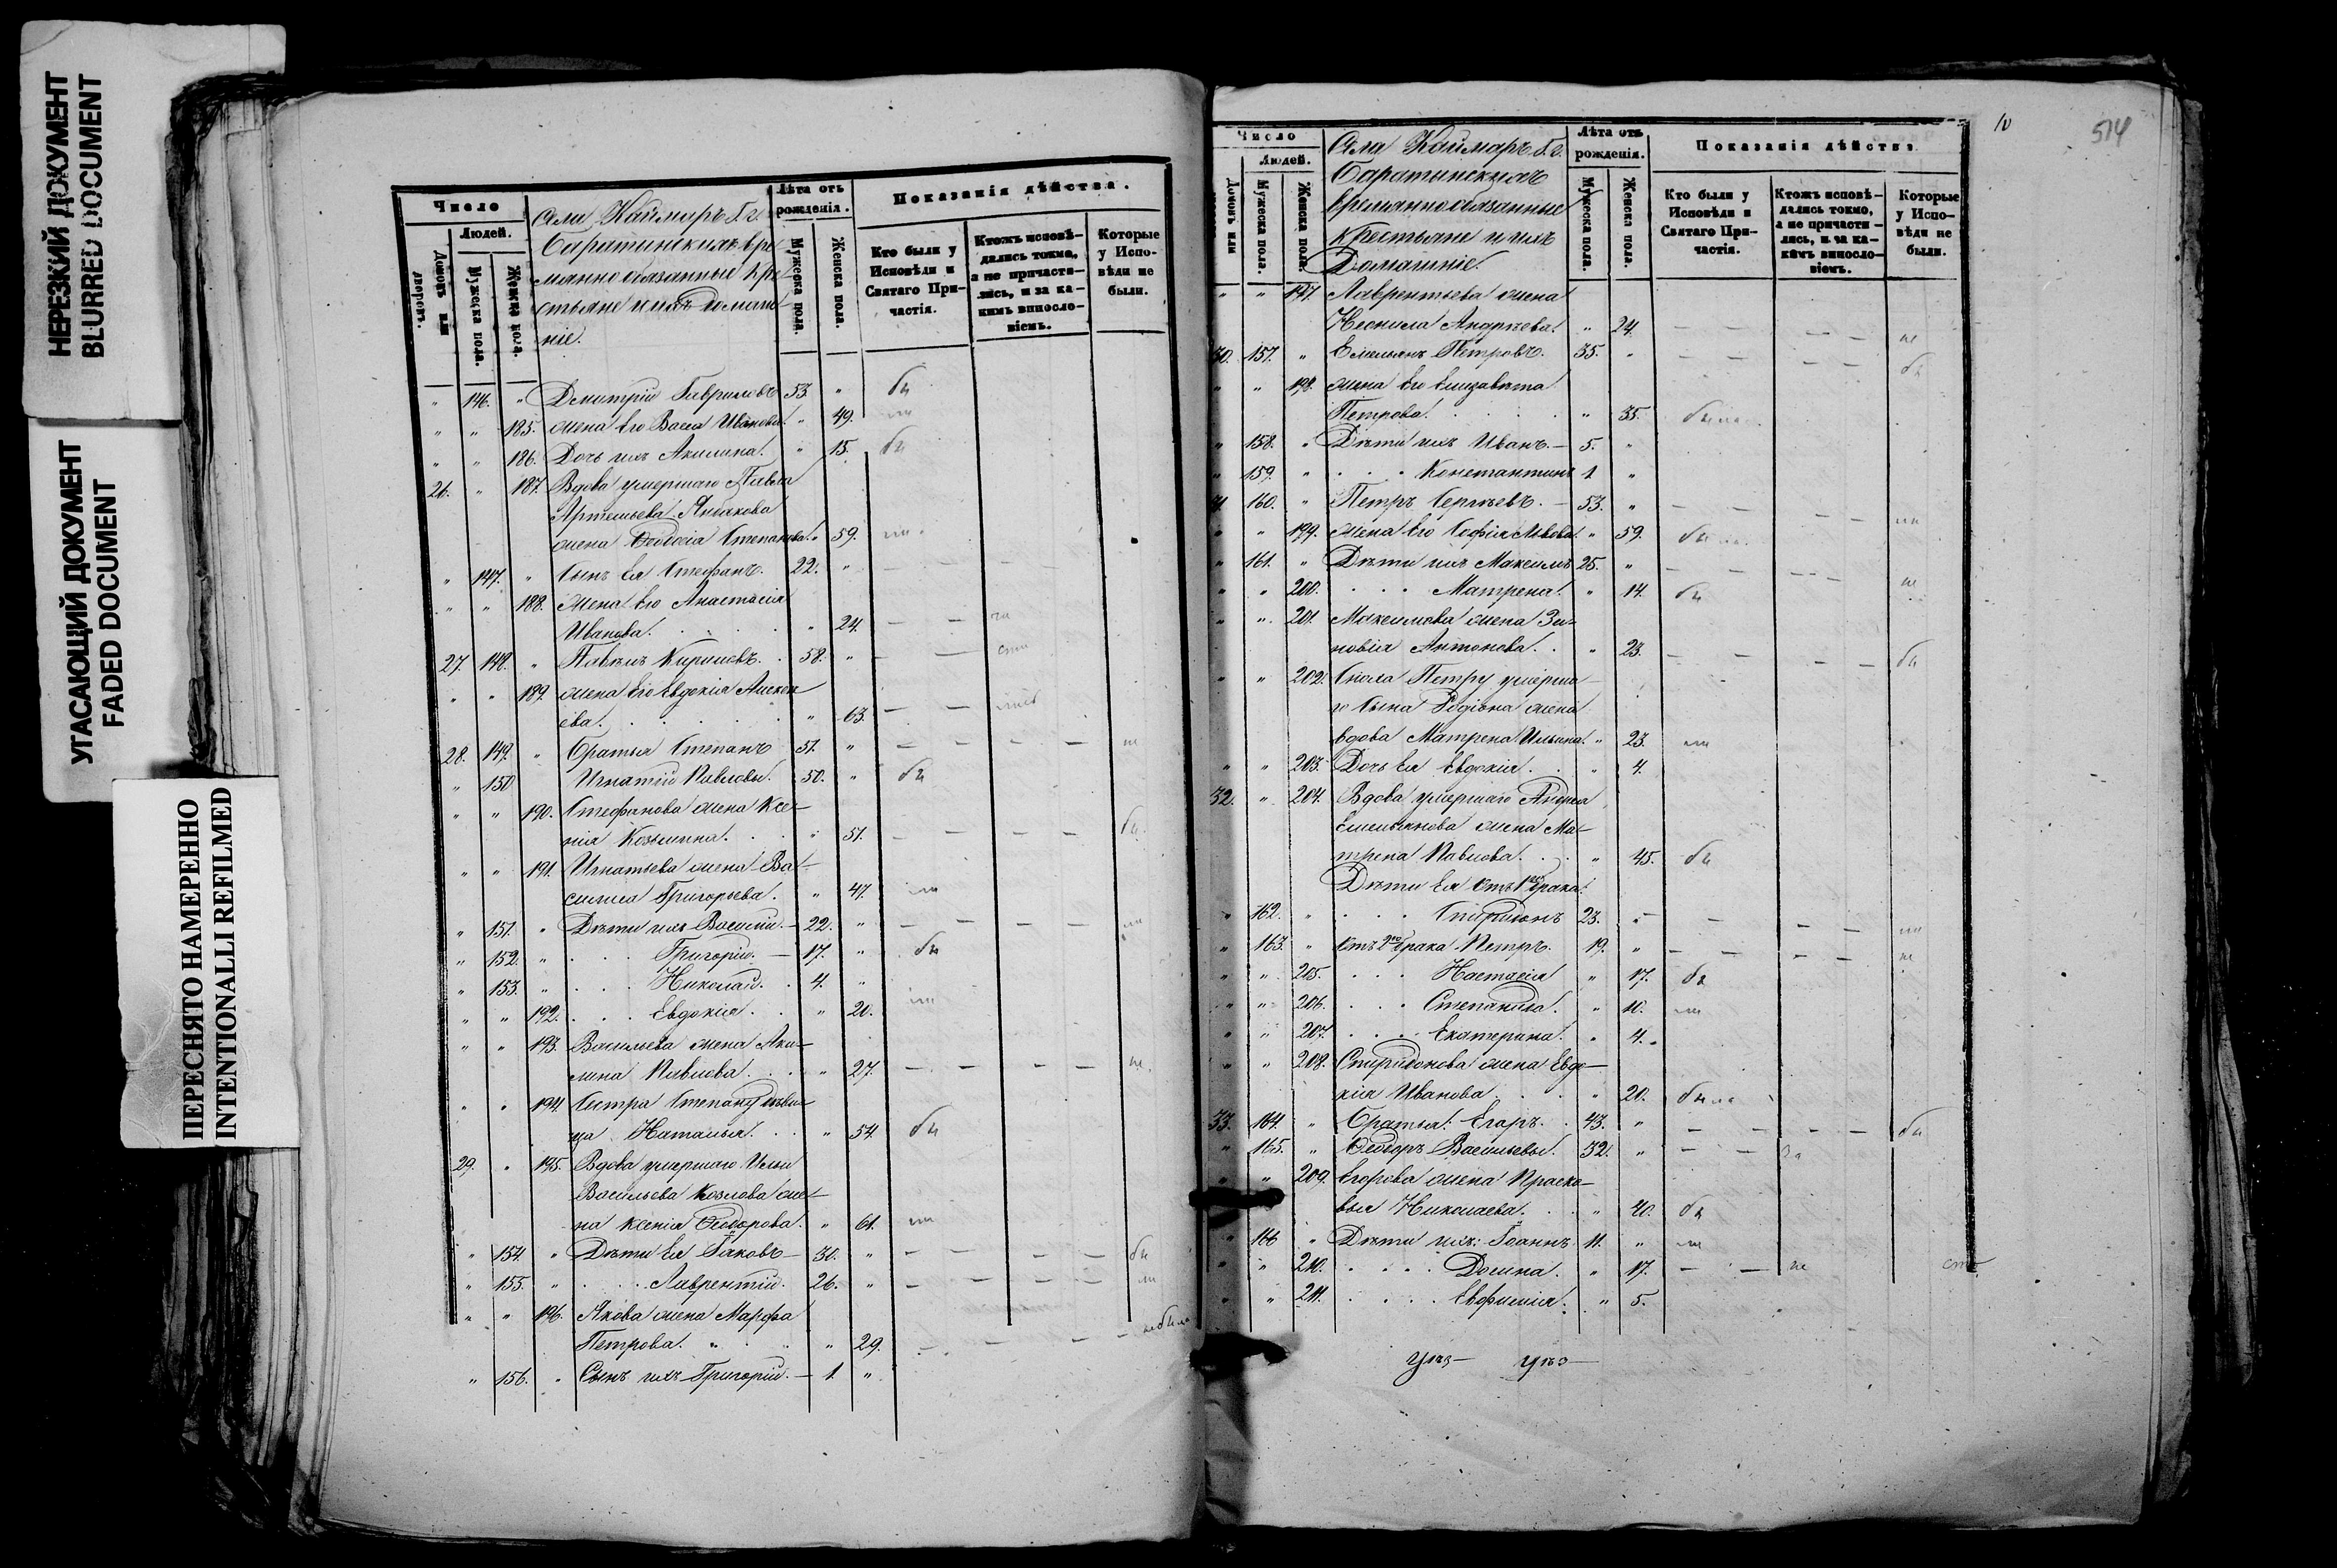 НЕРЕЗКИЙ ДОКУМЕНТ
BLURRED DOCUMENT
УГАСАЮЩИЙ ДОКУМЕНТ
FADED DOCUMENT
ПЕРЕСНЯТО НАМЕРЕННО
INTENTIONALLI REFILMED
Число
Людей.
Домовъ или дворовъ.
Мужеска пола.
Женска пола.
Села Каймаръ Г. г.
Баратинскихъ вре
мянно обязанные Кре
стьяне и ихъ домаш
ніе.
Лѣта отъ рожденія.
Мужеска пола.
Женска пола.
Показанія дѣйства.
Кто были у Исповѣди и Святаго При-
частія.
Ктожъ исповѣ-
дались токмо,
а не причасти-
лись, и за ка-
кимъ виносло-
віемъ.
Которые
у Испо-
вѣди не
были.
" 146. " Дмитрій Гавриловъ 53. " бы
" " 185. жена Его Васса Иванова. " 49. ли
" " 186. Дочь ихъ Акилина. " 15. бы
26. " 187. Вдова умершаго Павла
Артемьева
жена Ѳеодосія Степанова. " 59. ли
" 147. " Сынъ Ея Стефанъ. 22. "
" " 188. Жена Его Анастасія
Иванова. " 24.
27. 148. " Павелъ Кириловъ. 58. "
" " 189. жена Его Евдокія Алексѣ
ева. " 63.
28. 149. " Братья Степанъ 51. " не
" 150 Игнатій Павловы. 50. " бы
" " 190. Стефанова жена Ксе-
нія Козьмина. " 51. бы
" " 191. Игнатьева жена Ва-
силиса Григорьева. " 47. ли
" 151. " Дѣти ихъ Василій. 22. " ли
" 152. " Григорій. 17. " бы
" 153. " Николай. 4. "
" " 192. Евдокія. " 20. ли
" " 193. Васильева жена Аки-
лина Павлова. " 27. не
" " 194. Сестра Степану дѣви-
ца Наталья. " 54. бы
29. " 195. Вдова умершаго Ильи
Васильева Козлова же-
на Ксенія Ѳеодорова. " 61. ли
" 154. " Дѣти Ея Іаковъ 30. " бы
" 155. " Лаврентій. 26. " ли
" " 196. Якова жена Марфа
Петрова. " 29. не была
" 156. " Сынъ ихъ Григорій. 1. "
10
514
Число
Людей.
Домовъ или
Мужеска пола.
Женска пола.
Села Каймаръ Г. г.
Баратынскихъ
временнообязанные
Крестьяне и ихъ
Домашніе.
Лѣта отъ рожденія.
Мужеска пола.
Женска пола.
Показанія дѣйства
Кто были у
Исповѣди и
Святаго При-
частія.
Ктожъ исповѣ-
дались токмо,
а не причасти-
лись, и за ка-
кимъ виносло-
віемъ.
Которые
у Испо-
вѣди не
были.
" " 197. Лаврентьева жена
Неонила Андреева. " 24. не
30. 157. " Емельянъ Петровъ. 35. " бы
" " 198. жена Его Елизавета
Петрова. " 35. была
" 158. " Дѣти ихъ Иванъ. 5. "
" 159. " Константинъ 1 "
31. 160. " Петръ Сергѣевъ. 53. " ли
" " 199. Жена Его Софія Львова. " 59. была
" 161. " Дѣти ихъ Максимъ 25. " не
" " 200. Матрена. " 14. бы
" " 201. Максимова жена Зи-
новія Антонова. " 23. бы
" " 202. Сноха Петру умерша
го Сына Родіона жена
вдова Матрена Ильина. " 23. ли
" " 203. Дочь Ея Евдокія. " 4.
32. " 204. Вдова умершаго Андрея
Емельянова жена Ма-
трена Павлова. " 45. бы
Дѣти Ея отъ 1го брака:
" 162. " Спиридонъ 23. " ли
" 163. " отъ 2го брака Петръ. 19. " не
" " 205. Настасія " 17. бы
" " 206. Степанида. " 10. ли
" " 207. Екатерина. " 4.
" " 208. Спиридонова жена Евдо-
кія Иванова. " 20. была
33. 164. " Братья: Егоръ. 43. " бы
" 165. " Ѳеодоръ Васильевы. 32. "
" " 209. Егорова жена Праско-
вья Николаева. " 40. бы
" 166 " Дѣти ихъ: Іоаннъ 11. " ли
" " 210. Домна. " 17. не
" " 211. Евфимія. " 5.